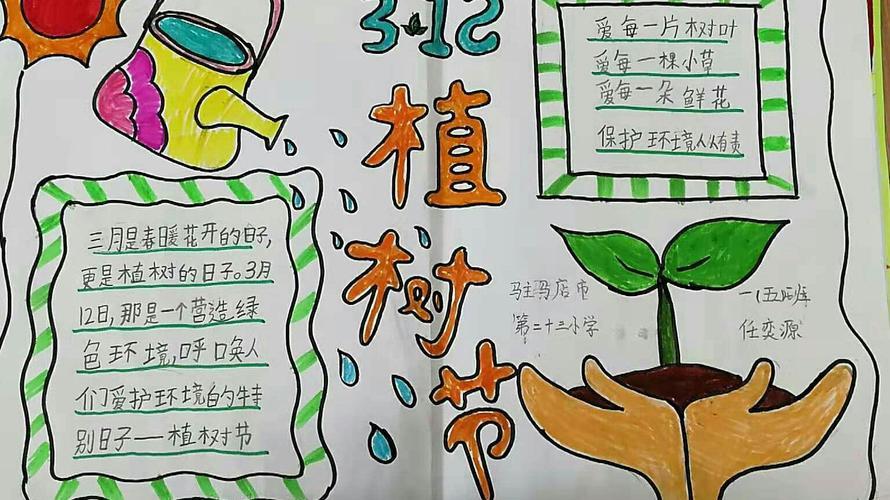 3·12
植
树
节
爱每一片树叶
爱每一棵小草
爱每一朵鲜花
保护环境人人有责
三月是春暖花开的日子,
更是植树的日子。3月
12日,那是一个营造绿
色环境,呼唤人
们爱护环境的特
别日子——植树节
驻马店市
第二十三小学
一(五)班
任奕源